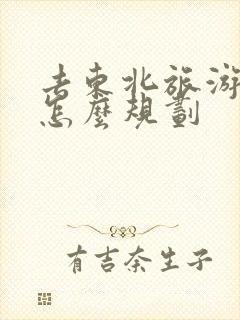 去東北旅游
怎麼規劃
有吉奈生子